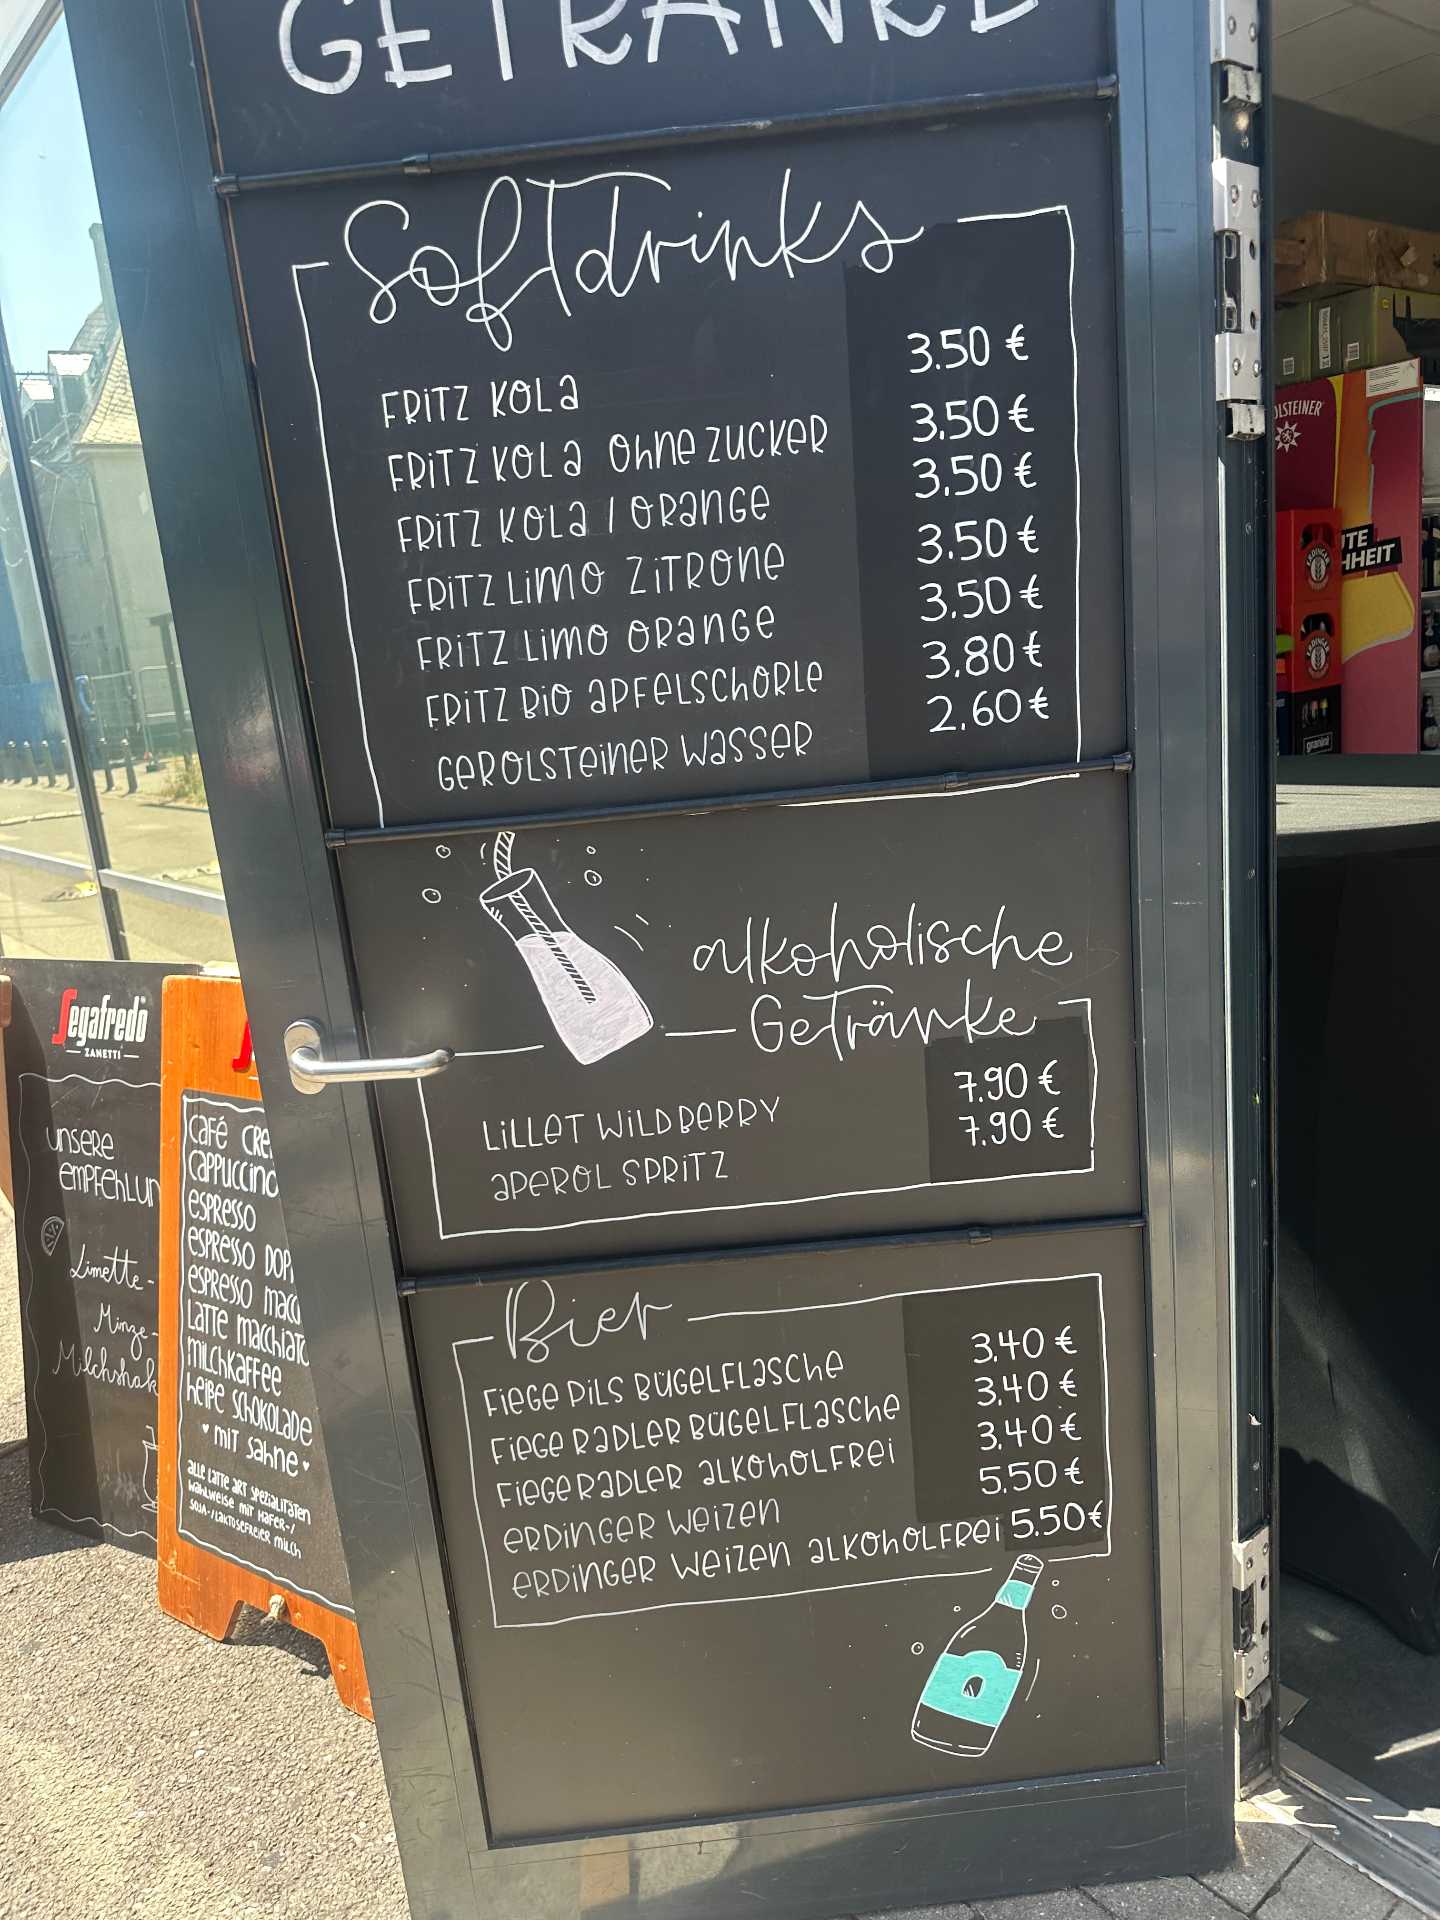 GETRÄNKE
Softdrinks
FRITZ KOLA 3.50 €
FRITZ KOLA OHNE ZUCKER 3.50 €
FRITZ KOLA / ORANGE 3.50 €
FRITZ LIMO ZITRONE 3.50 €
FRITZ LIMO ORANGE 3.50 €
FRITZ BIO APFELSCHORLE 3.80 €
GEROLSTEINER WASSER 2.60 €
alkoholische
Getränke
LILLET WILDBERRY 7.90 €
APEROL SPRITZ 7.90 €
Bier
FIEGE PILS BÜGELFLASCHE 3.40 €
FIEGE RADLER BÜGELFLASCHE 3.40 €
FIEGE RADLER ALKOHOLFREI 3.40 €
ERDINGER WEIZEN 5.50 €
ERDINGER WEIZEN ALKOHOLFREI 5.50 €
Segafredo
ZANETTI
UNSERE
EMPFEHLUN
Limette-
Minze-
Milchshak
CAFÉ CRE
CAPPUCCINO
ESPRESSO
ESPRESSO DOPP
ESPRESSO MACC
LATTE MACCHIATO
MILCHKAFFEE
HEIßE SCHOKOLADE
MIT SAHNE
ALLE LATTE ART SPEZIALITÄTEN
WAHLWEISE MIT HAFER-/
SOJA-/LAKTOSEFREIER MILCH
OLSTEINER
UTE
HHEIT
ERDINGER
ERDINGER
granini